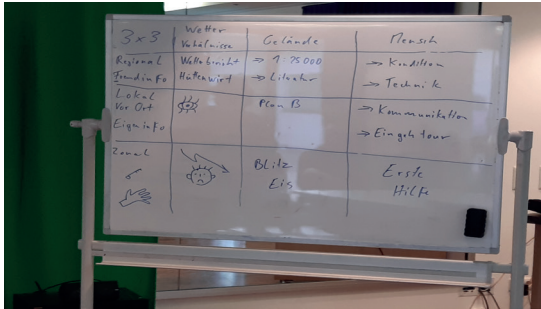 3x3
Wetter
Verhältnisse
Gelände
Mensch
Regional
Fremdinfo
Wetterbericht
Hüttenwirt
⇒ 1:25000
⇒ Literatur
⇒ Kondition
⇒ Technik
Lokal
Vor Ort
Eigeninfo
Plan B
⇒ Kommunikation
⇒ Eingehtour
Zonal
Blitz
Eis
Erste
Hilfe